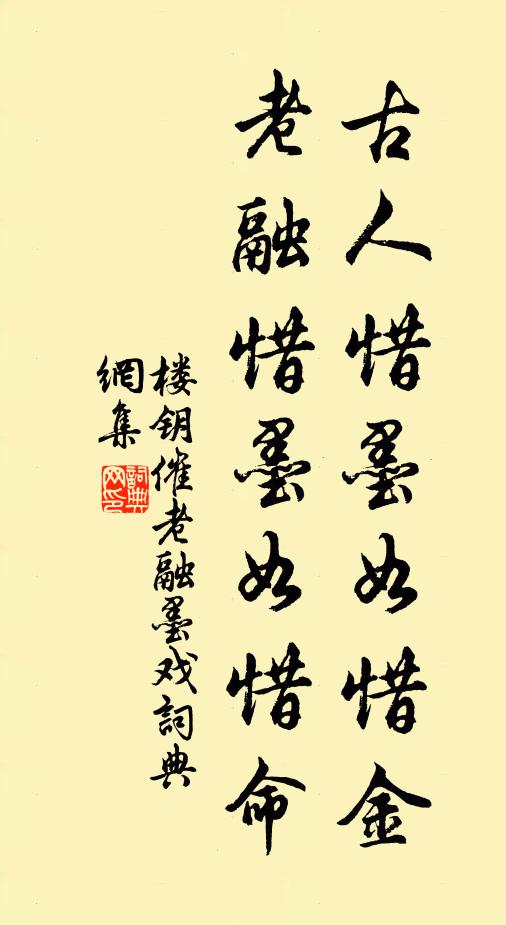 古人惜墨如惜金
老融惜墨如惜命
楼钥催老融墨戏詞典
網集
詞典
网印